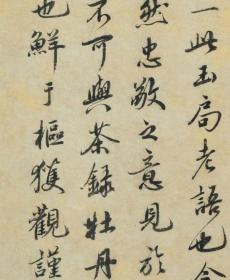 一此玉局老語也今
然忠敬之意見於
不可與茶錄牡丹
也鮮于樞獲觀謹